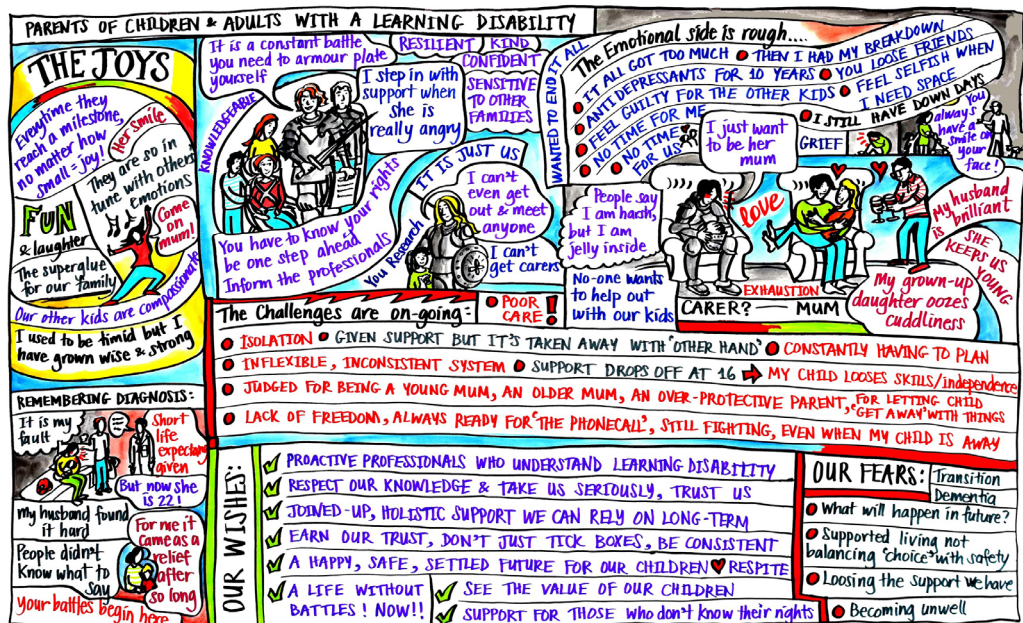 PARENTS OF CHILDREN & ADULTS WITH A LEARNING DISABILITY
THE JOYS
Everytime they
reach a milestone,
no matter how
small = joy!
Her smile
They are so in
tune with others
Emotions
FUN
& laughter
Come
on
mum!
The superglue
for our family
Our other kids are compassionate
I used to be timid but I
have grown wise & strong
REMEMBERING DIAGNOSIS:
It is my
fault
Short
life
expectancy
given
But now she
is 22!
my husband found
it hard
People didn't
know what to
say
For me it
came as a
relief
after
so long
your battles begin here
It is a constant battle
you need to armour plate
yourself
RESILIENT
KIND
CONFIDENT
SENSITIVE
TO OTHER
FAMILIES
KNOWLEDGEABLE
I step in with
support when
she is
really angry
You have to know your rights
be one step ahead
Inform the professionals
IT IS JUST US
You Research
I can't
even get
out & meet
anyone
I can't
get carers
WANTED TO END IT ALL
The Emotional side is rough....
IT ALL GOT TOO MUCH
THEN I HAD MY BREAKDOWN
ANTI DEPRESSANTS FOR 10 YEARS
YOU LOOSE FRIENDS
FEEL GUILTY FOR THE OTHER KIDS
FEEL SELFISH WHEN
I NEED SPACE
NO TIME FOR ME
NO TIME
FOR US
I STILL HAVE DOWN DAYS
I just want
to be her
mum
GRIEF
You
always
have a
smile on
your
face!
People say
I am harsh,
but I am
jelly inside
No-one wants
to help out
with our kids
love
EXHAUSTION
CARER?
MUM
My husband
is brilliant
SHE
KEEPS US
YOUNG
My grown-up
daughter oozes
cuddliness
The Challenges are on-going:
POOR
CARE!
ISOLATION
GIVEN SUPPORT BUT IT'S TAKEN AWAY WITH 'OTHER HAND'
CONSTANTLY HAVING TO PLAN
INFLEXIBLE, INCONSISTENT SYSTEM
SUPPORT DROPS OFF AT 16
MY CHILD LOOSES SKILLS/independence
JUDGED FOR BEING A YOUNG MUM, AN OLDER MUM, AN OVER-PROTECTIVE PARENT, FOR LETTING CHILD
'GET AWAY' WITH THINGS
LACK OF FREEDOM, ALWAYS READY FOR 'THE PHONECALL', STILL FIGHTING, EVEN WHEN MY CHILD IS AWAY
OUR WISHES:
PROACTIVE PROFESSIONALS WHO UNDERSTAND LEARNING DISABILITY
RESPECT OUR KNOWLEDGE & TAKE US SERIOUSLY, TRUST US
JOINED-UP, HOLISTIC SUPPORT WE CAN RELY ON LONG-TERM
EARN OUR TRUST, DON'T JUST TICK BOXES, BE CONSISTENT
A HAPPY, SAFE, SETTLED FUTURE FOR OUR CHILDREN
RESPITE
A LIFE WITHOUT
BATTLES! NOW!!
SEE THE VALUE OF OUR CHILDREN
SUPPORT FOR THOSE who don't know their rights
OUR FEARS:
Transition
Dementia
What will happen in future?
Supported living not
balancing 'choice' with safety
Loosing the support we have
Becoming unwell